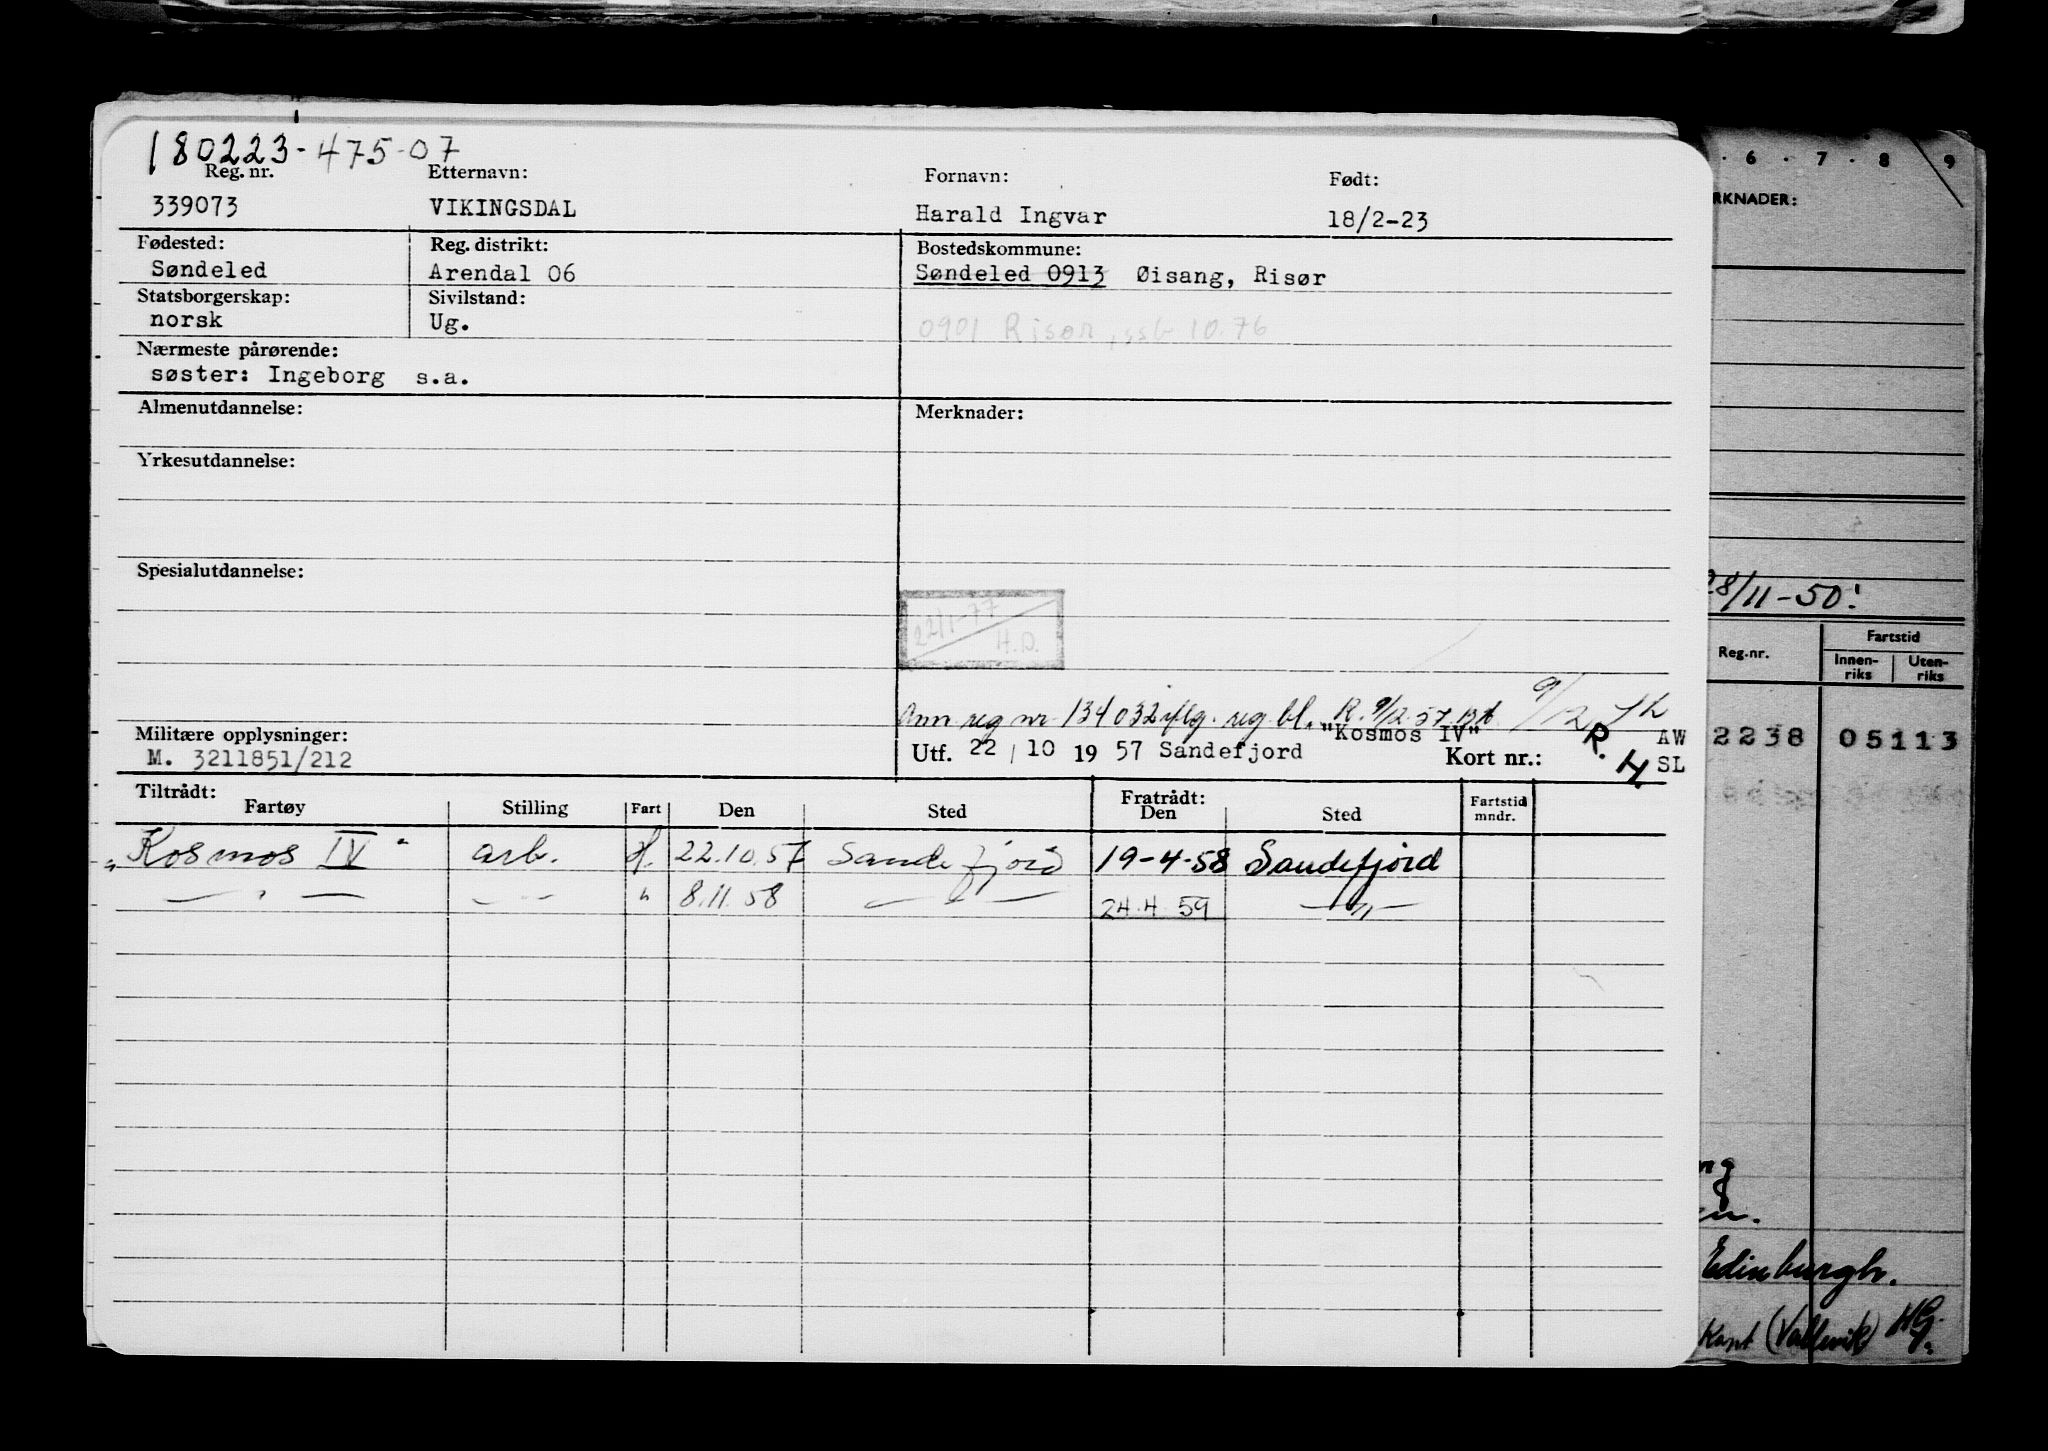 180223-475-07
Reg. nr. Etternavn: Fornavn: Født:
339073 VIKINGSDAL Harald Ingvar 18/2-23
Fødested: Reg. distrikt: Bostedskommune:
Søndeled Arendal 06 Søndeled 0913 Øisang, Risør
Statsborgerskap: Sivilstand:
norsk Ug. 0901 Risør, ssb 10.76
Nærmeste pårørende:
søster: Ingeborg s.a.
Almenutdannelse: Merknader:
Yrkesutdannelse:
Spesialutdannelse:
22/1-77
H.D.
Ann reg nr 134032 iflg. reg. bl. R. 9/12.57. 9/12
Militære opplysninger: "Kosmos IV" R.H. AW
M. 3211851/212 Utf. 22/10 1957 Sandefjord Kort nr.: SL
Tiltrådt: Fratrådt:
Fartøy Stilling Fart Den Sted Den Sted Fartstid mndr.
"Kosmos IV" arb. H. 22.10.57 Sandefjord 19-4-58 Sandefjord
— " — — " — " 8.11.58 — " — 24.4.59 — " —
6 . 7 . 8 9
RKNADER:
28/11-50!
Reg.nr. Fartstid
Innen-riks Uten-riks
2238 05113
Edinburgh.
Kapt (Vallevik) HG.